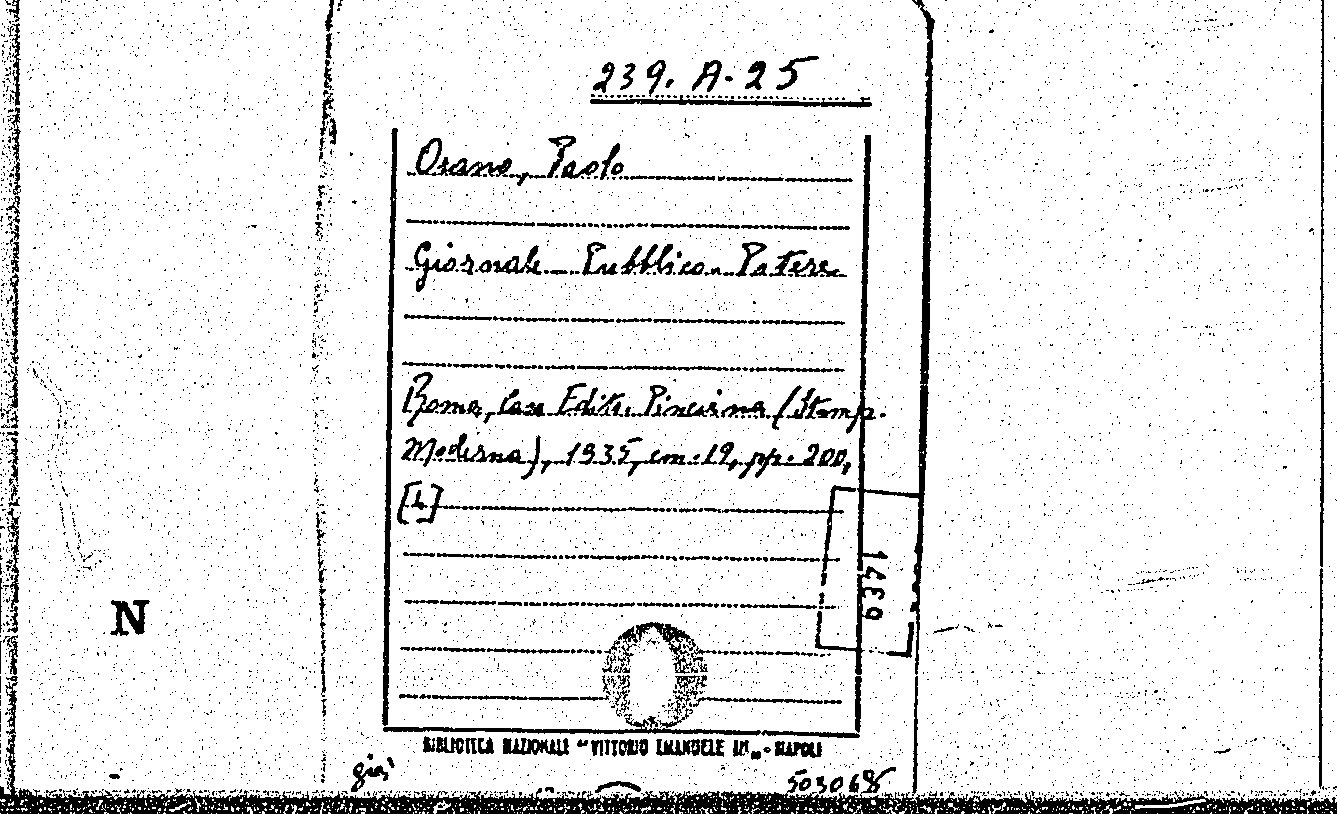 239. A. 25
Orano, Paolo
Giornale Pubblico Potere
Roma, Casa Edit. Pinciana (Stamp.
Moderna), 1935, cm. 19, pp. 200,
[1]
1439
N
BIBLIOTECA NAZIONALE "VITTORIO EMANUELE III" - NAPOLI
già
503068